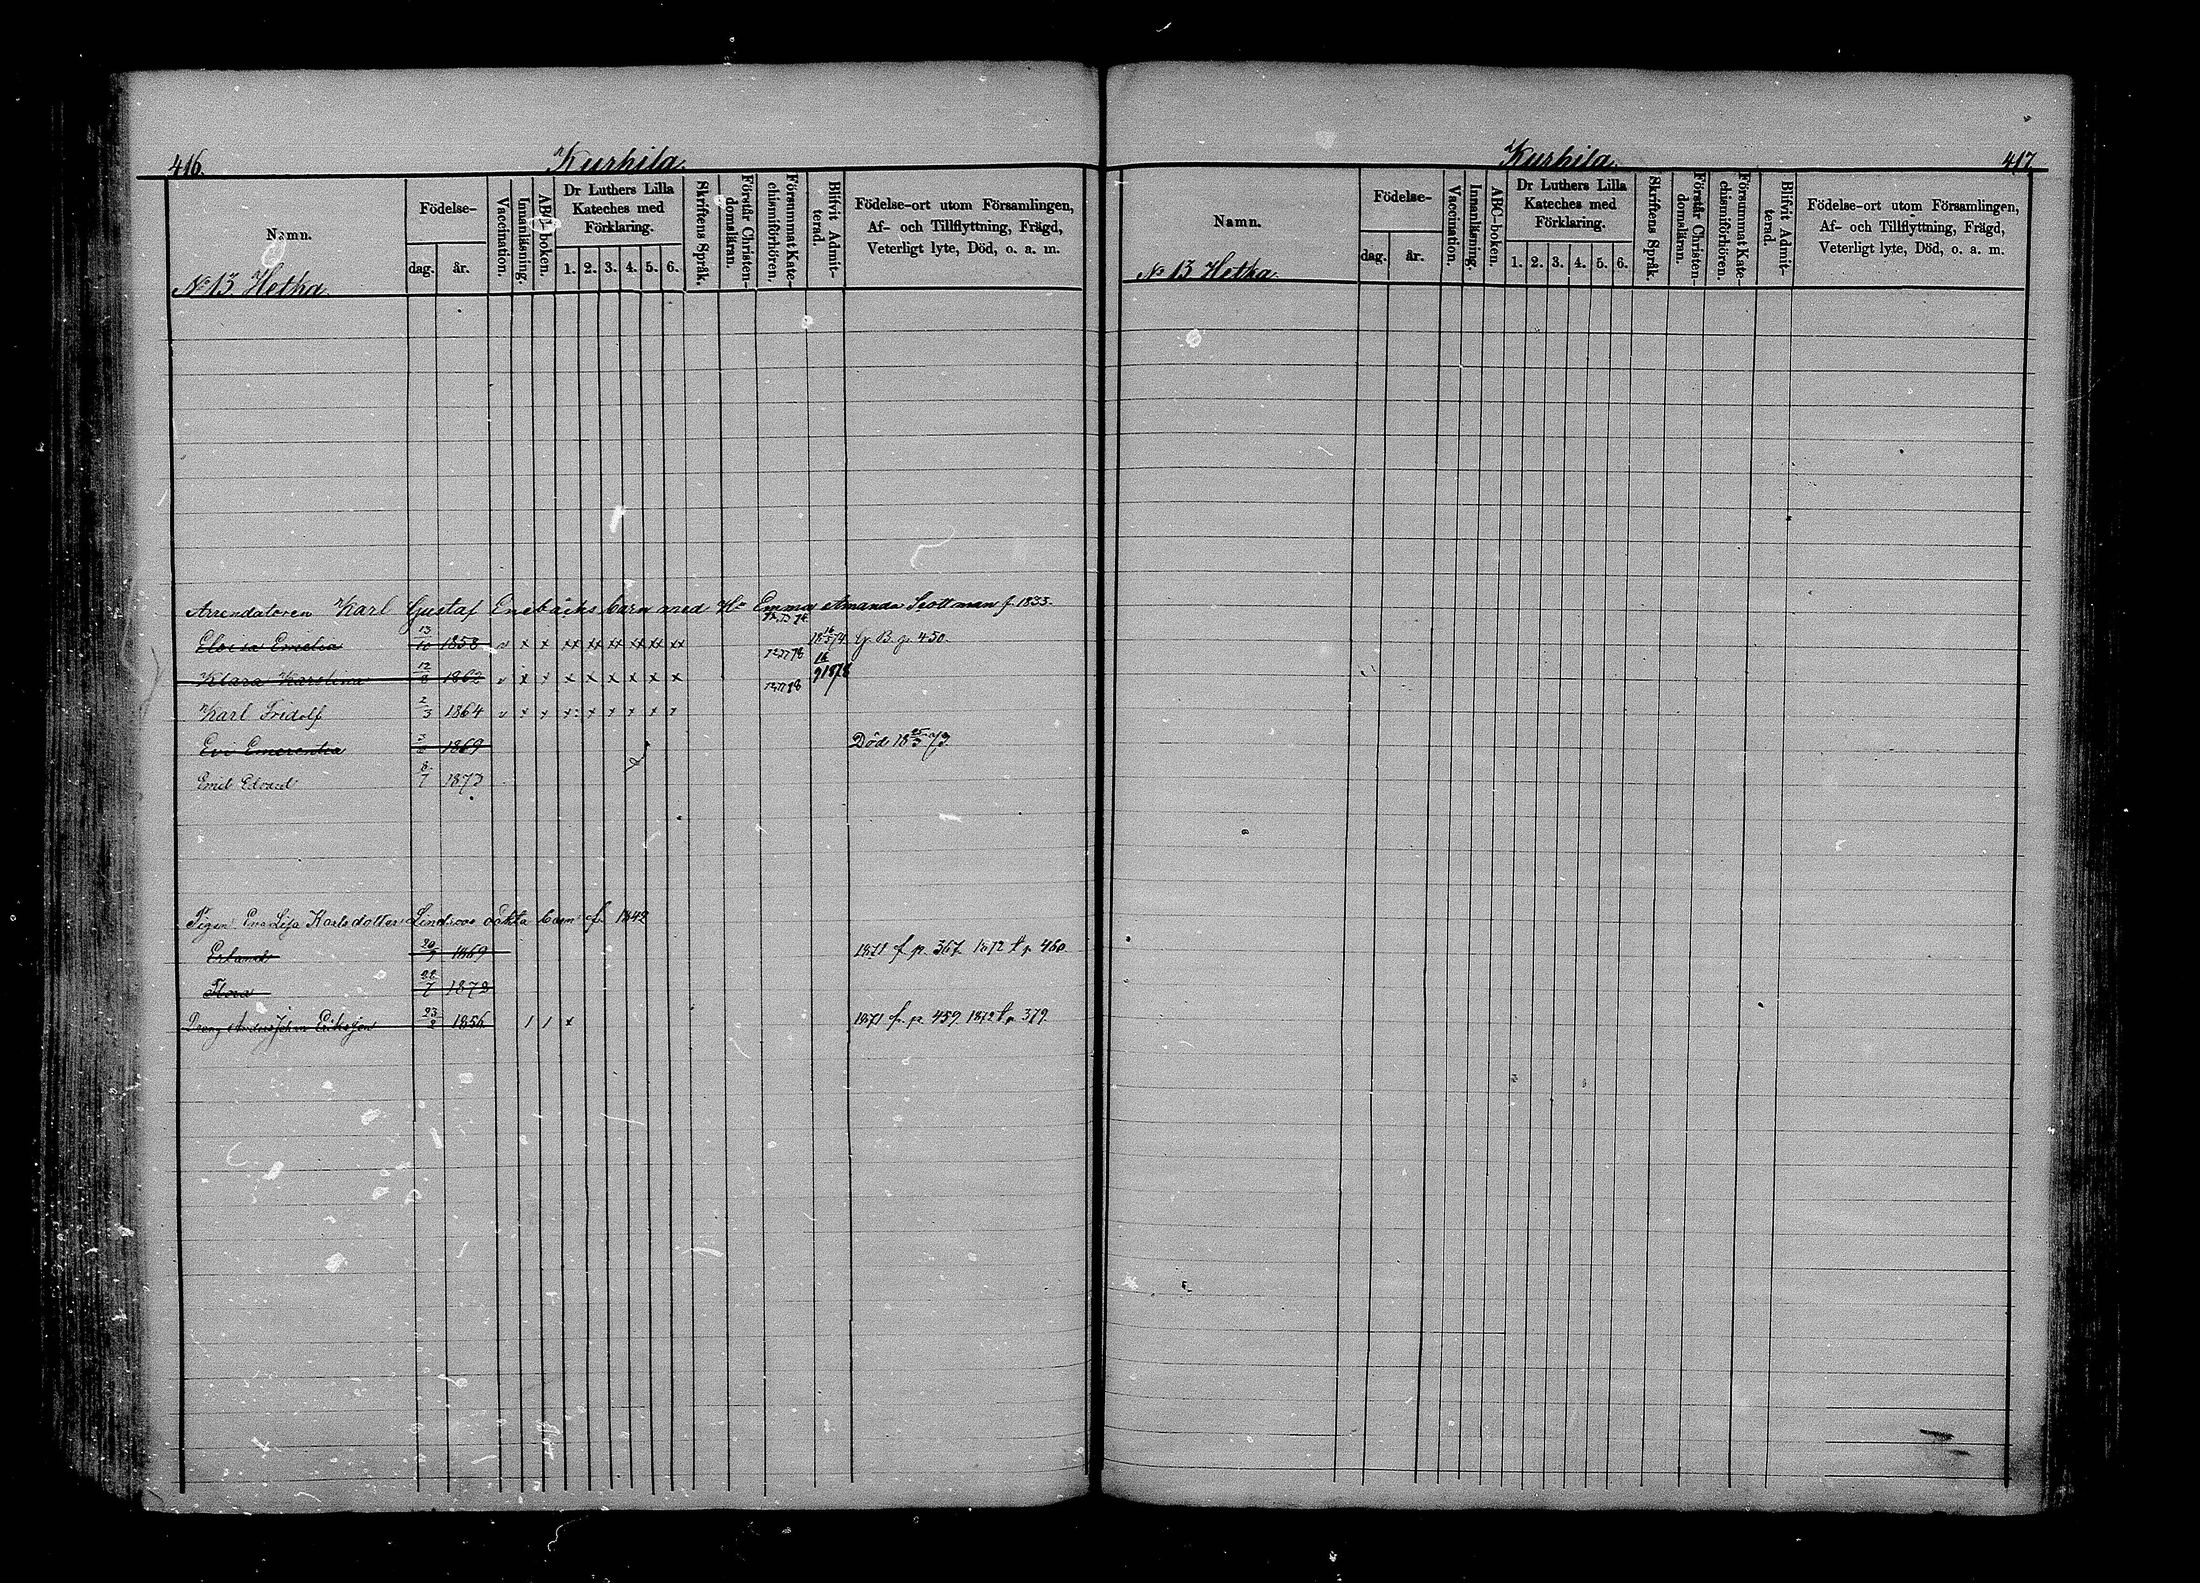 416. Kurhila.
Namn.
Födelse-
dag. år.
Vaccination.
Innanläsning.
ABC-boken.
Dr Luthers Lilla
Kateches med
Förklaring.
1. 2. 3. 4. 5. 6.
Skriftens Språk.
Förstår Christen-
domsläran.
Försummat Kate-
chismiförhören.
Blifvit Admit-
terad.
Födelse-ort utom Församlingen,
Af- och Tillflyttning, Frägd,
Veterligt lyte, Död, o. a. m.
No 13. Hetha
Arrendatoren Karl Gustaf Enebäcks barn med H:u Emma Amanda Scottman f. 1833.
Emelia 13/10 1858 v x x xx xx xx xx xx xx 18 16/5 74 p. 450.
Klara Karolina 12/8 1862 v x x x x x x x x 1878
Karl Fridolf 2/3 1864 v x x x x x x x x
Eva Emerentia 1869 Död 18 25/3 73
Emil Edvard 8/7 1873
Pigan Eva Lisa Karlsdotter Lindroos oäkta barn f. 1842
Erland 20/9 1869 1871 f. p. 367. 1872 t. p. 460.
Flora 22/7 1872
Dräng Anders Johan Eriksson 23/2 1856 / / x 1871 f. p. 459. 1872 t. p. 379.
Kurhila. 417
Namn.
Födelse-
dag. år.
Vaccination.
Innanläsning.
ABC-boken.
Dr Luthers Lilla
Kateches med
Förklaring.
1. 2. 3. 4. 5. 6.
Skriftens Språk.
Förstår Christen-
domsläran.
Försummat Kate-
chismiförhören.
Blifvit Admit-
terad.
Födelse-ort utom Församlingen,
Af- och Tillflyttning, Frägd,
Veterligt lyte, Död, o. a. m.
No 13 Hetha